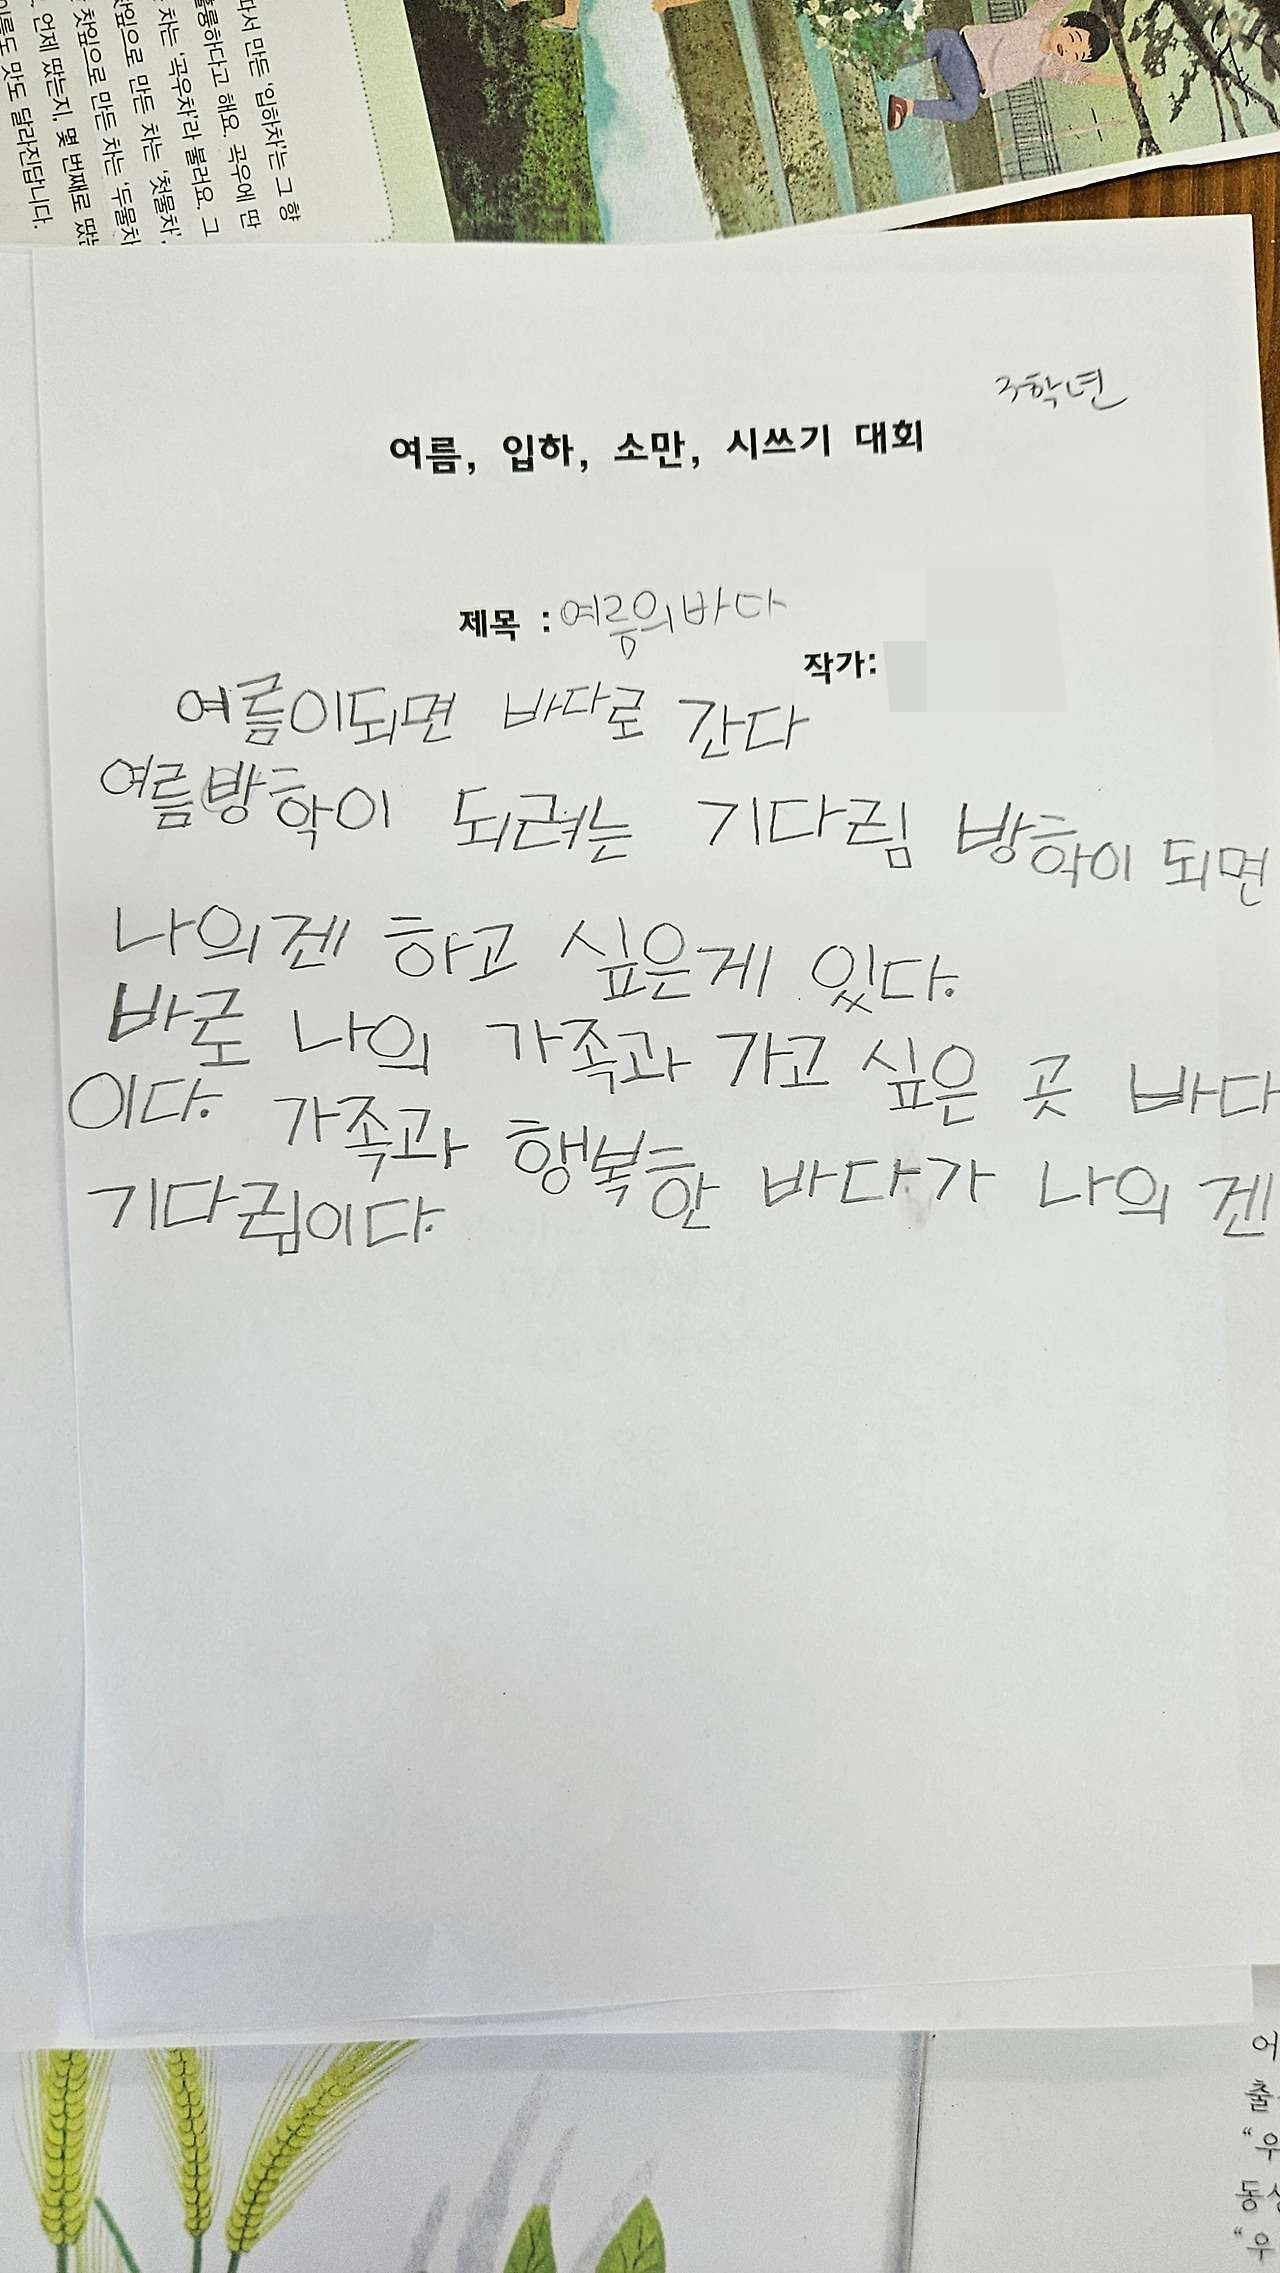 다서 만든 '입하차'는 그 향
훌륭하다고 해요. 곡우에 딴
차는 '곡우차'라 불러요. 그
찻잎으로 만든 차는 '첫물차',
찻잎으로 만든 차는 '두물차
언제 땄는지, 몇 번째로 땄는
이름도 맛도 달라진답니다.
3학년
여름, 입하, 소만, 시쓰기 대회
제목 : 여름의바다
작가:
여름이되면 바다로 간다
여름방학이 되려는 기다림 방학이 되면
나의겐 하고 싶은게 있다.
바로 나의 가족과 가고 싶은 곳 바다
이다. 가족과 행복한 바다가 나의 겐
기다림이다.
어
출
"우
동생
"우